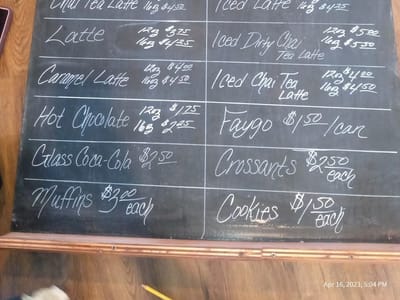 Chai Tea Latte 16oz $4.50
Latte 12oz $3.75
16oz $4.25
Caramel Latte 12oz $4.00
16oz $4.50
Hot Chocolate 12oz $1.75
16oz $2.25
Glass Coca-Cola $2.50
Muffins $3.00
each
Iced Latte 16oz
Iced Dirty Chai
Tea Latte
12oz $5.00
16oz $5.50
Iced Chai Tea
Latte
12oz $4.00
16oz $4.50
Faygo $1.50 /can
Crossants $2.50
each
Cookies $1.50
each
Apr 16, 2023, 5:04 PM